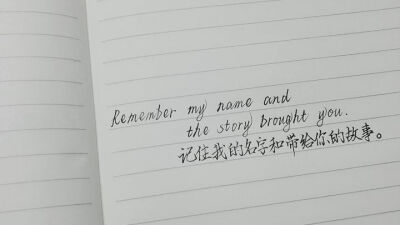 Remember my name and
the story brought you.
记住我的名字和带给你的故事。